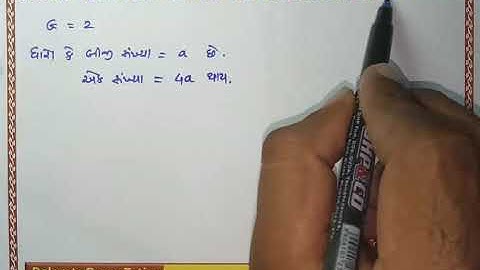 G = 2
ધારો કે બીજી સંખ્યા = a છે.
એક સંખ્યા = 4a થાય.